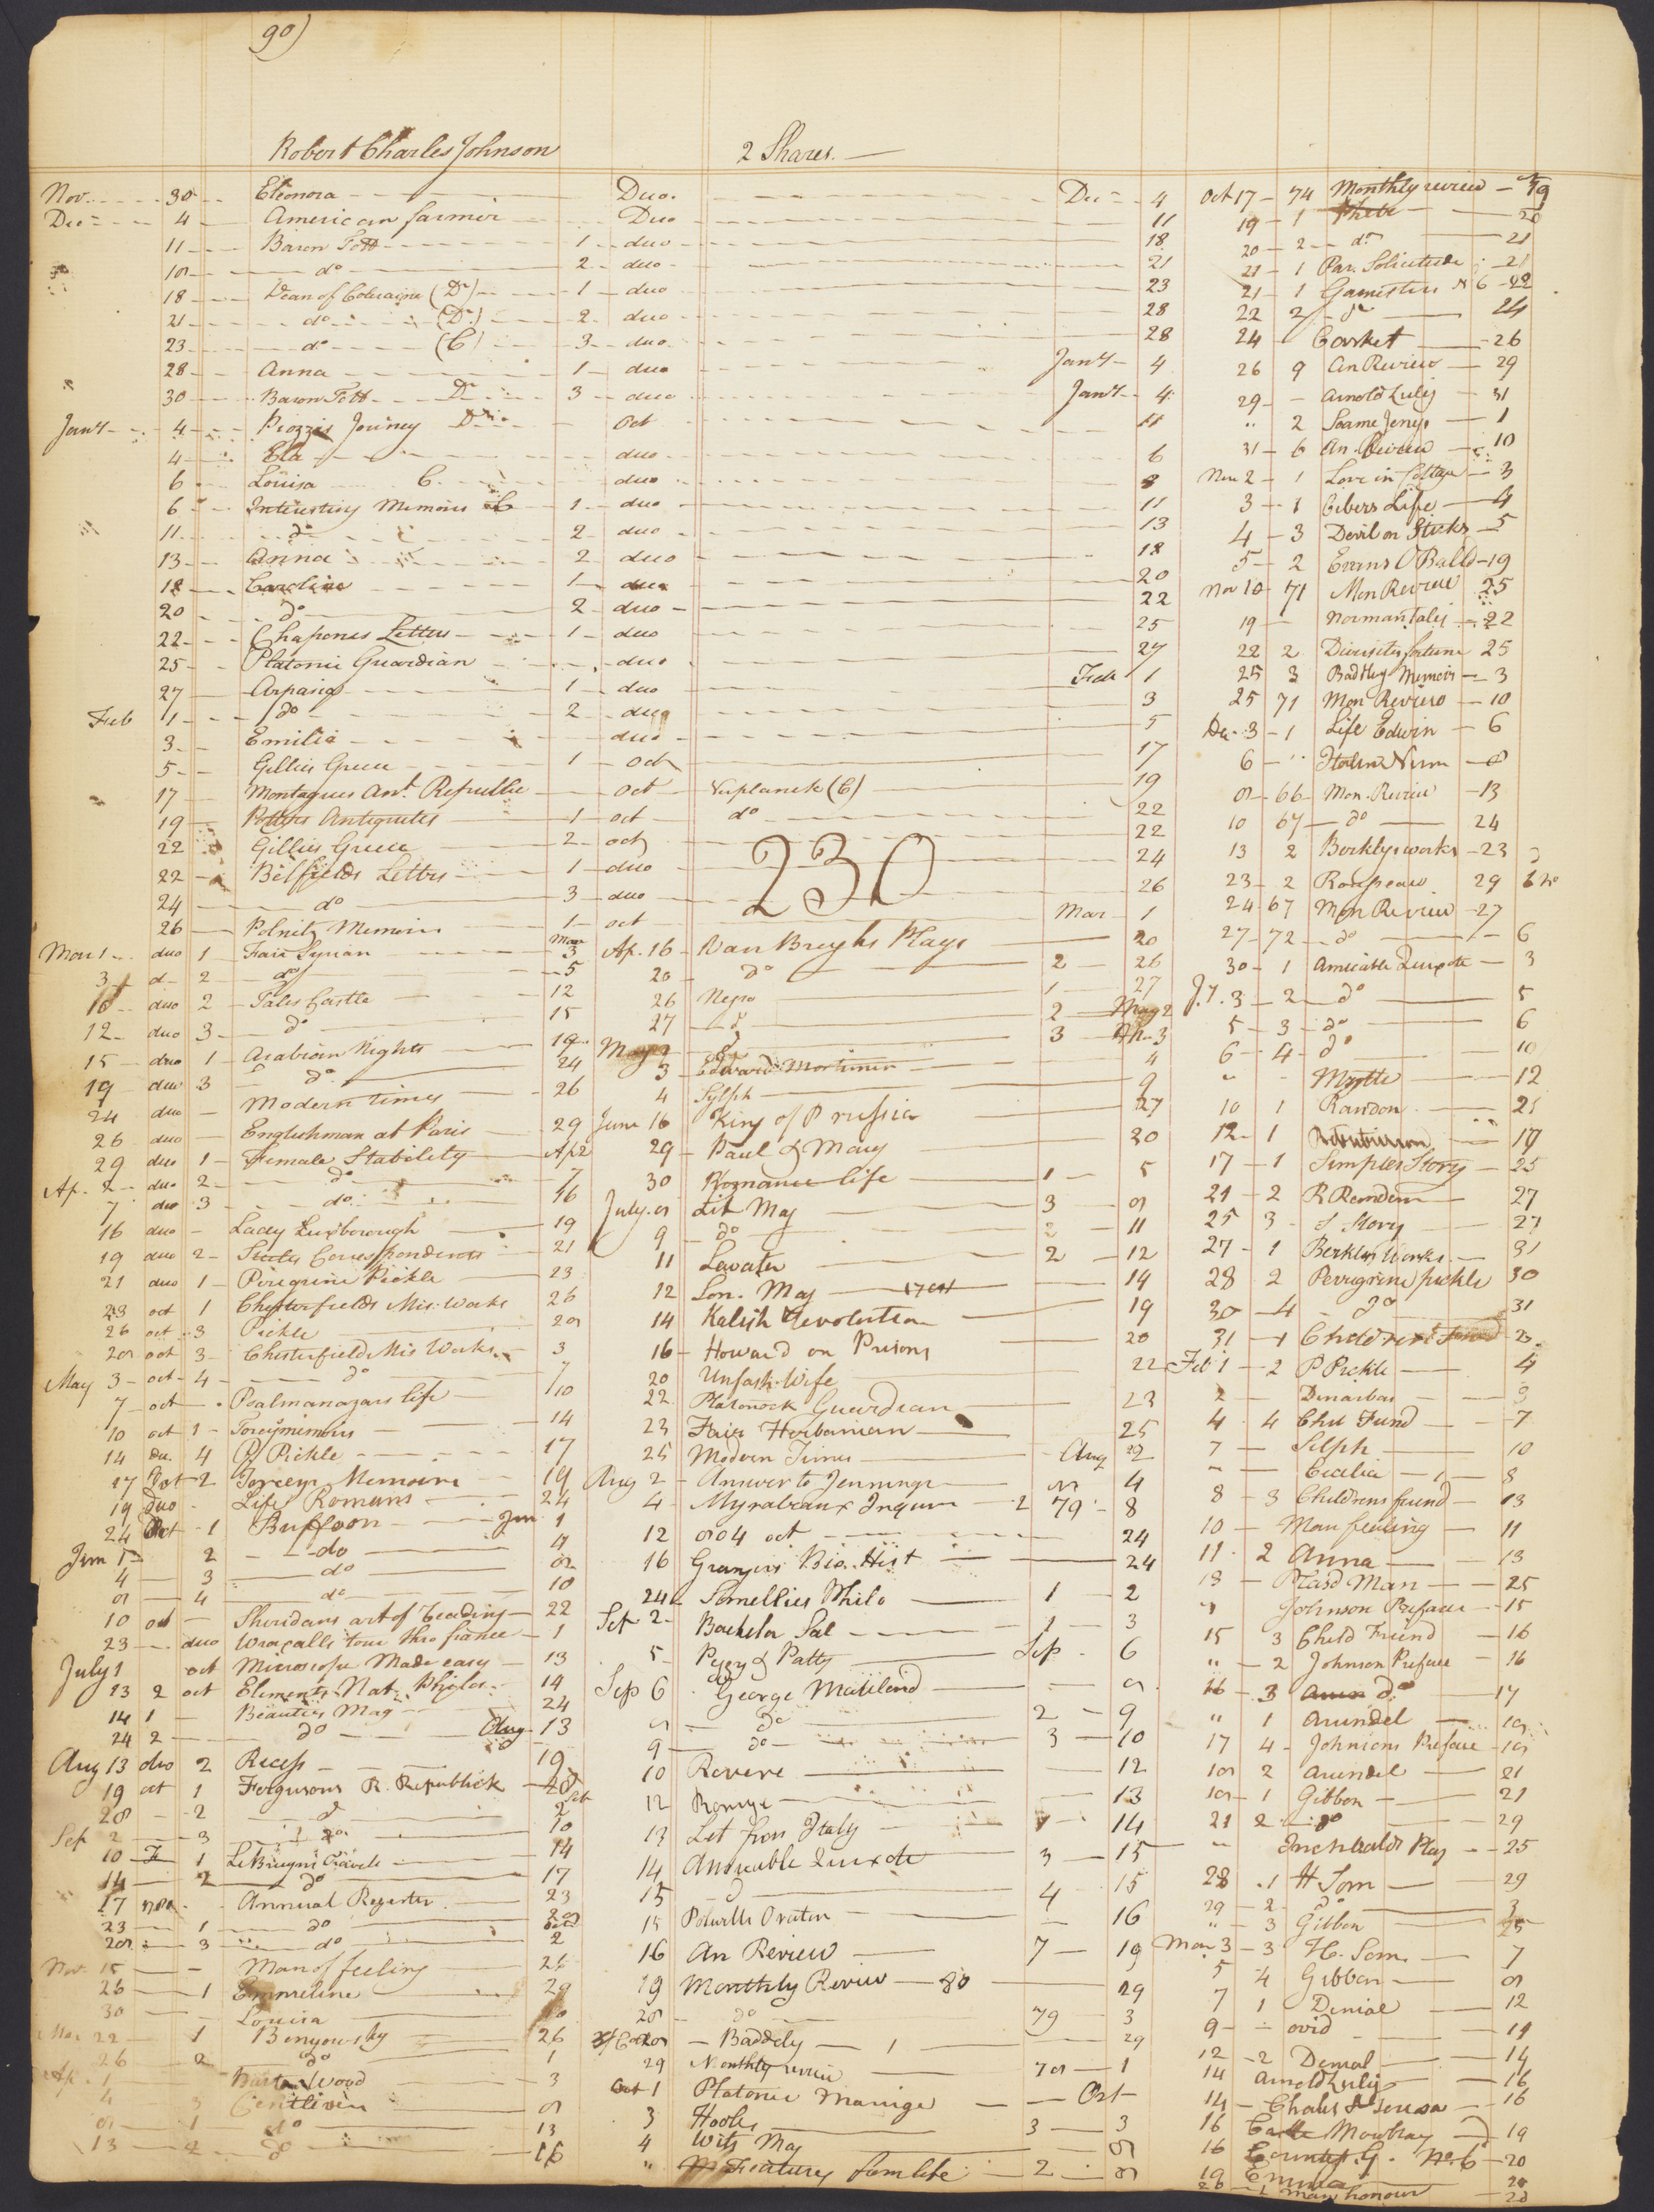 90)
Robert Charles Johnson 2 Shares.
Nov. 30 Eleonora Duo. Dec 4
Dec 4 American farmer Duo 11
11 Baron Tott 1 duo 18
18 do 2 duo 21
18 Dean of Coleraine (Dr) 1 duo 23
21 do (Dr) 2 duo 28
23 do (C) 3 duo 28
28 Anna 1 duo Jany 4
30 Baron Tott Dr 3 duo Jany 4
Jany 4 Piozzis Journey Oct 11
4 Ela duo 6
6 Louisa C. duo 8
6 Interesting Memoirs C 1 duo 11
11 do 2 duo 13
13 Anna 2 duo 18
18 Caroline 1 duo 20
20 do 2 duo 22
22 Chapones Letters 1 duo 25
25 Platonic Guardian duo 27
27 Arpasia 1 duo Feb 1
Feb 1 do 2 duo 3
3 Emilia duo 5
5 Gillies Greece 1 oct 17
17 Montagues Ant. Republic oct Verplanck (C) 19
19 Potters Antiquites 1 oct do 22
22 Gillies Greece 2 oct 22
22 Belfields Letters 1 duo 24
24 do 3 duo 26
26 Polnitz Memoirs 1 oct Mar 1
230
Mar 1 duo 1 Fair Syrian Mar 3
3 d 2 do 5
10 duo 2 Tales Castle 12
12 duo 3 do 15
15 duo 1 Arabian Nights 19
19 duo 3 do 24
24 duo Modern times 26
26 duo Englishman at Paris 29
29 duo 1 Female Stability Ap 2
Ap. 2 duo 2 do 7
7 duo 3 do 16
16 duo Lady Luxborough 19
19 duo 2 Correspondence 21
21 duo 1 Peregrine Pickle 23
23 oct 1 Chesterfields Mis. Works 26
26 oct 3 Pickle 28
28 oct 3 Chesterfields Mis Works 3
May 3 oct 4 do 7
7 oct Psalmanazars life 10
10 oct 1 Torcys memoirs 14
14 du. 4 P Pickle 17
17 Oct 2 Torceys Memoirs 19
19 Duo Life Romans 24
24 Oct 1 Buffoon Jun 1
Jun 1 2 do 4
4 3 do 8
8 4 do 10
10 oct Sheridans art of Reading 22
23 duo Wraxalls tour thro france 1
July 1 oct Microscope Made easy 13
13 2 oct Elements Nat. Philos. 14
14 1 Beauties Mag 24
24 2 do Aug 13
Aug 13 duo 2 Recess 19
19 oct 1 Fergusons R. Republick 28
28 2 do Sep 2
Sep 2 3 do 10
10 1 Le Bruyns Travels 14
14 2 do 17
17 Annual Register 23
23 1 do 28
28 3 do 2
Nov. 15 Man of feeling 26
26 1 Emmeline 29
30 Louisa
22 1 Benyowsky 26
26 2 do 1
Ap. 1 Wood 3
4 3 Centlivre 8
8 1 do 13
13 2 do 16
Ap. 16 Van Brughs Plays 20
20 do 2 26
26 Negro 1 27
27 d 2 May 2
May 2 d 3 3
3 Edward Mortimer 4
4 Sylph 9
June 16 King of Prussia 27
29 Paul & Mary 30
30 Romance life 1 5
July 8 Lit Mag 3 8
9 do 2 11
11 Lavater 2 12
12 Lon. Mag 14
14 Kalish Revolution 19
16 Howard on Prisons 20
20 Unfash. Wife 22
22 Platonick Guardian 23
23 Fair Herbanian 25
25 Modern Times Aug 2
Aug 2 Answer to Jennings 4
4 Myrabeaux Inquire 2 79 8
12 804 oct 24
16 Grangers Bio. Hist 24
24 Smellies Philo 1 2
Sep 2 Bachelor Sal 1 3
5 Peggy & Patty Sep 6
Sep 6 George Mateland 8
8 do 2 9
9 do 3 10
10 Revere 12
12 13
13 Let from Italy 14
14 Amicable Quixote 3 15
15 d 4 15
15 Potwells Orator 16
16 An Review 7 19
19 Monthly Review 80 29
28 do 79 3
28 Baddely 1 29
29 Monthly review 78 1
Oct 1 Platonic Marriage Oct
3 Hooles 3 3
4 Wits Mag 8
" Features from life 2 8
Oct 17 74 Monthly review 19
19 1 Phebe 20
20 2 do 21
21 1 Par. Solicitude 21
21 1 Gamesters N 6 22
22 2 do 24
24 Casket 26
26 9 An Review 29
29 Arnold Zulig 31
" 2 Soame Jenys 1
31 6 An Review 10
Nov 2 1 Love in Cottage 3
3 1 Cibers Life 4
4 3 Devil on Sticks 5
5 2 Evans O Ballds 19
Nov 10 71 Mon Review 25
19 Norman Tales 22
22 2 Diversity fortune 25
25 3 Baddley Memoirs 3
25 71 Mon Review 10
Dec 3 1 Life Edwin 6
6 " Italian Nun 8
8 66 Mon. Review 13
10 67 do 24
13 2 Berklys works 23
23 2 Rouseau 29
24 67 Mon Review 27
27 72 do 6
30 1 Amicable Quixote 3
Jy. 3 2 do 5
5 3 do 6
6 4 do 10
" Myrtle 12
10 1 Random 21
12 1 17
17 1 Simples Story 25
21 2 R Random 27
25 3 S Story 27
27 1 Berklys Works 31
28 2 Peregrine pickle 30
30 4 do 31
31 1 Childrens Friend 2
Feb 1 2 P Pickle 4
2 Dinarbas 3
4 4 Chil Fund 7
7 Selph 10
" Cecilia 1 8
8 3 Childrens friend 13
10 Man feeling 11
11 2 Anna 13
13 Plaid Man 25
" Johnson Preface 15
15 3 Child Friend 16
" 2 Johnson Preface 16
16 3 do 17
" 1 Arundel 18
17 4 Johnsons Preface 18
18 2 Arundel 21
18 1 Gibbon 21
21 2 do 29
" Inchbalds Play 25
28 1 H Som 29
29 2 do 3
" 3 Gibbon 25
Mar 3 3 H. Som. 7
5 4 Gibbon 8
7 1 Denial 12
9 Ovid 14
12 2 Denial 14
14 Arnold Zulig 16
14 Charles & Teresa 16
16 Castle Mowbray 19
16 Countess G. No. 6 20
19 Emma 20
20 1 Man honour 20